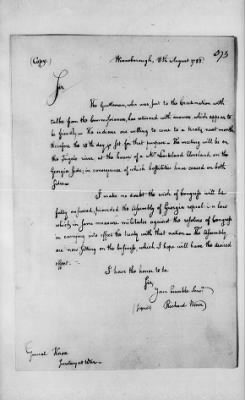 (Copy)
Winnsborough, 18th August 1788
Sir
The Gentleman, who was sent to the Creek nation with
talks from the Commissioners, has returned with answers, which appear to
be friendly. The indians are willing to come to a treaty next month
therefore the 15th day is set for that purpose. The meeting will be on
the Tugalo river at the house of a Mr. Cleveland on the
Georgia side; in consequence of which hostilities have ceased on both
sides
I make no doubt the wish of congress will be
fully answered, provided the assembly of Georgia repeal a law
which in some measure militates against the resolves of congress
in carrying into effect the treaty with that nation. The Assembly
are now sitting on the business, which I hope will have the desired
effect.
I have the honor to be
Sir,
Your humble Servt
(signed) Richard Winn
General Knox
Secretary at War